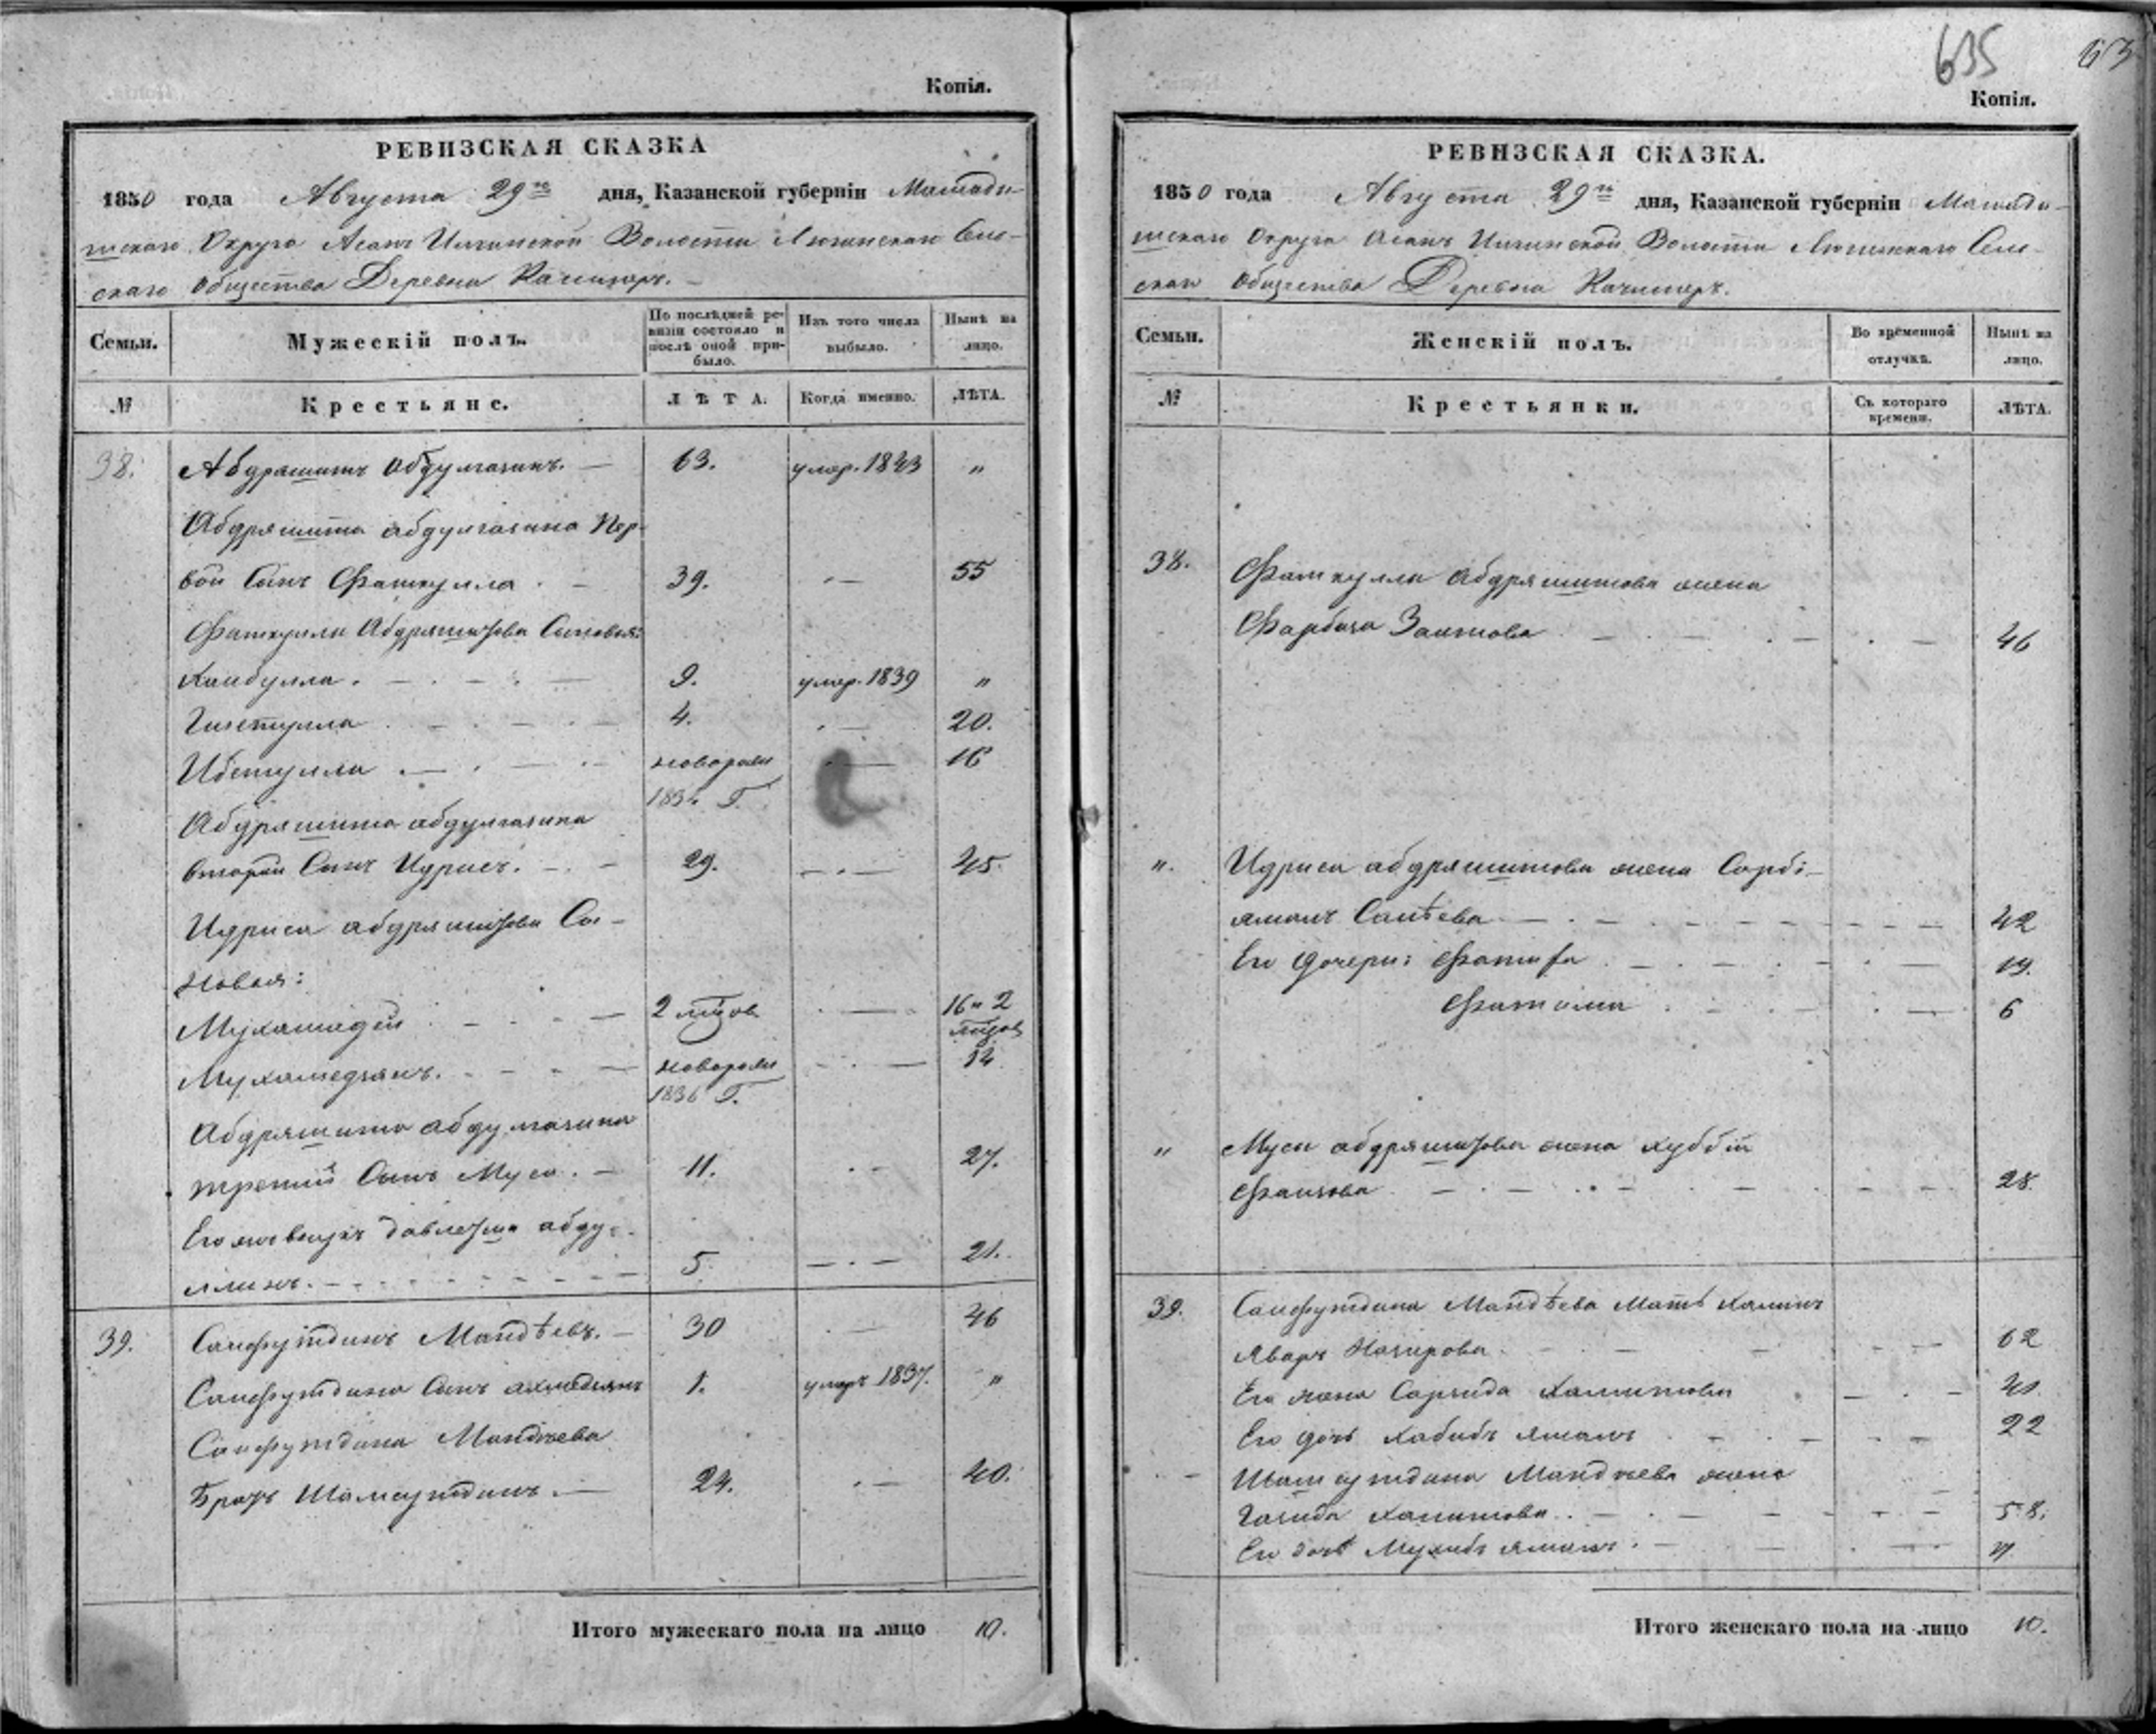 Копія.
РЕВИЗСКАЯ СКАЗКА
1850 года Августа 29го дня, Казанской губерніи Мамады-
шскаго Округа Асанъ Илгинской Волости Люгинскаго Сель-
скаго Общества Деревни Качимеръ.
Семьи.
Мужескій полъ.
По послѣдней ре-
визіи состояло и
послѣ оной при-
было.
Изъ того числа
выбыло.
Нынѣ на
лицо.
№
Крестьяне.
ЛѢТА.
Когда именно.
ЛѢТА.
38. Абдрашитъ Абдулгазинъ. 63. умер. 1843 "
Абдряшита абдулгазина Пер-
вой Сынъ Фаткулла 39. 55
Фаткуллы Абдряшитова Сыновья:
Хайбулла. 9. умер. 1839 "
4. 20.
новорож 16
1834 Г.
Абдряшита абдулгазина
второй Сынъ Идрисъ. 29. 45.
Идриса абдряшитова Сы-
новья:
2 мѣсов 16 и 2
мѣсов
Мухаметзянъ. новорож 12
1836 Г.
Абдряшита абдулгазина
третий Сынъ Муса. 11. 27.
Его же внукъ давлетша абду-
ллинъ. 5. 21.
39. Сайфутдинъ Мандѣевъ. 30 46
Сайфутдина Сынъ ахмедзянъ 1. умеръ 1837. "
Сайфутдина Мандѣева
Братъ Шамсутдинъ. 24. 40.
Итого мужескаго пола на лицо 10.
635
63
Копія.
РЕВИЗСКАЯ СКАЗКА.
1850 года Августа 29го дня, Казанской губерніи Мамады-
шскаго Округа Асанъ Илгинской Волости Люгинскаго Сель-
скаго Общества Деревни Качимеръ.
Семьи.
Женскій полъ.
Во временной
отлучкѣ.
Нынѣ на
лицо.
№
Крестьянки.
Съ котораго
времени.
ЛѢТА.
38. Фаткуллы Абдряшитова жена
Фарбиза Заитова 46
". Идриса абдряшитова жена Сарбі-
ямалъ Саитѣева 42
Его дочери: 19.
Фатима 6
" Мусы абдряшитова жена
Фаизова 28.
39. Сайфутдина Мандѣева Мать
Яваръ Назирова 62
Его жена Сарзида Халитова 41.
Его дочь хабибъ ямалъ 22
Шамсутдина Мандѣева жена
58.
Его дочь Мухибъ ямалъ. 11
Итого женскаго пола на лицо 10.